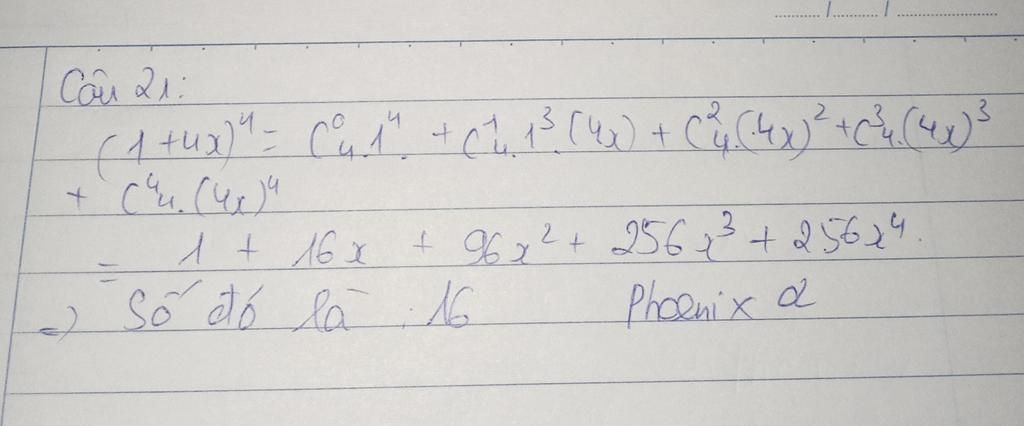 Câu 21:
(1+4x)⁴ = C⁰₄.1⁴. + C¹₄.1³.(4x) + C²₄.(4x)² + C³₄.(4x)³
+ C⁴₄.(4x)⁴
= 1 + 16x + 96x² + 256x³ + 256x⁴.
=) Số đó là : 16 Phoenix α